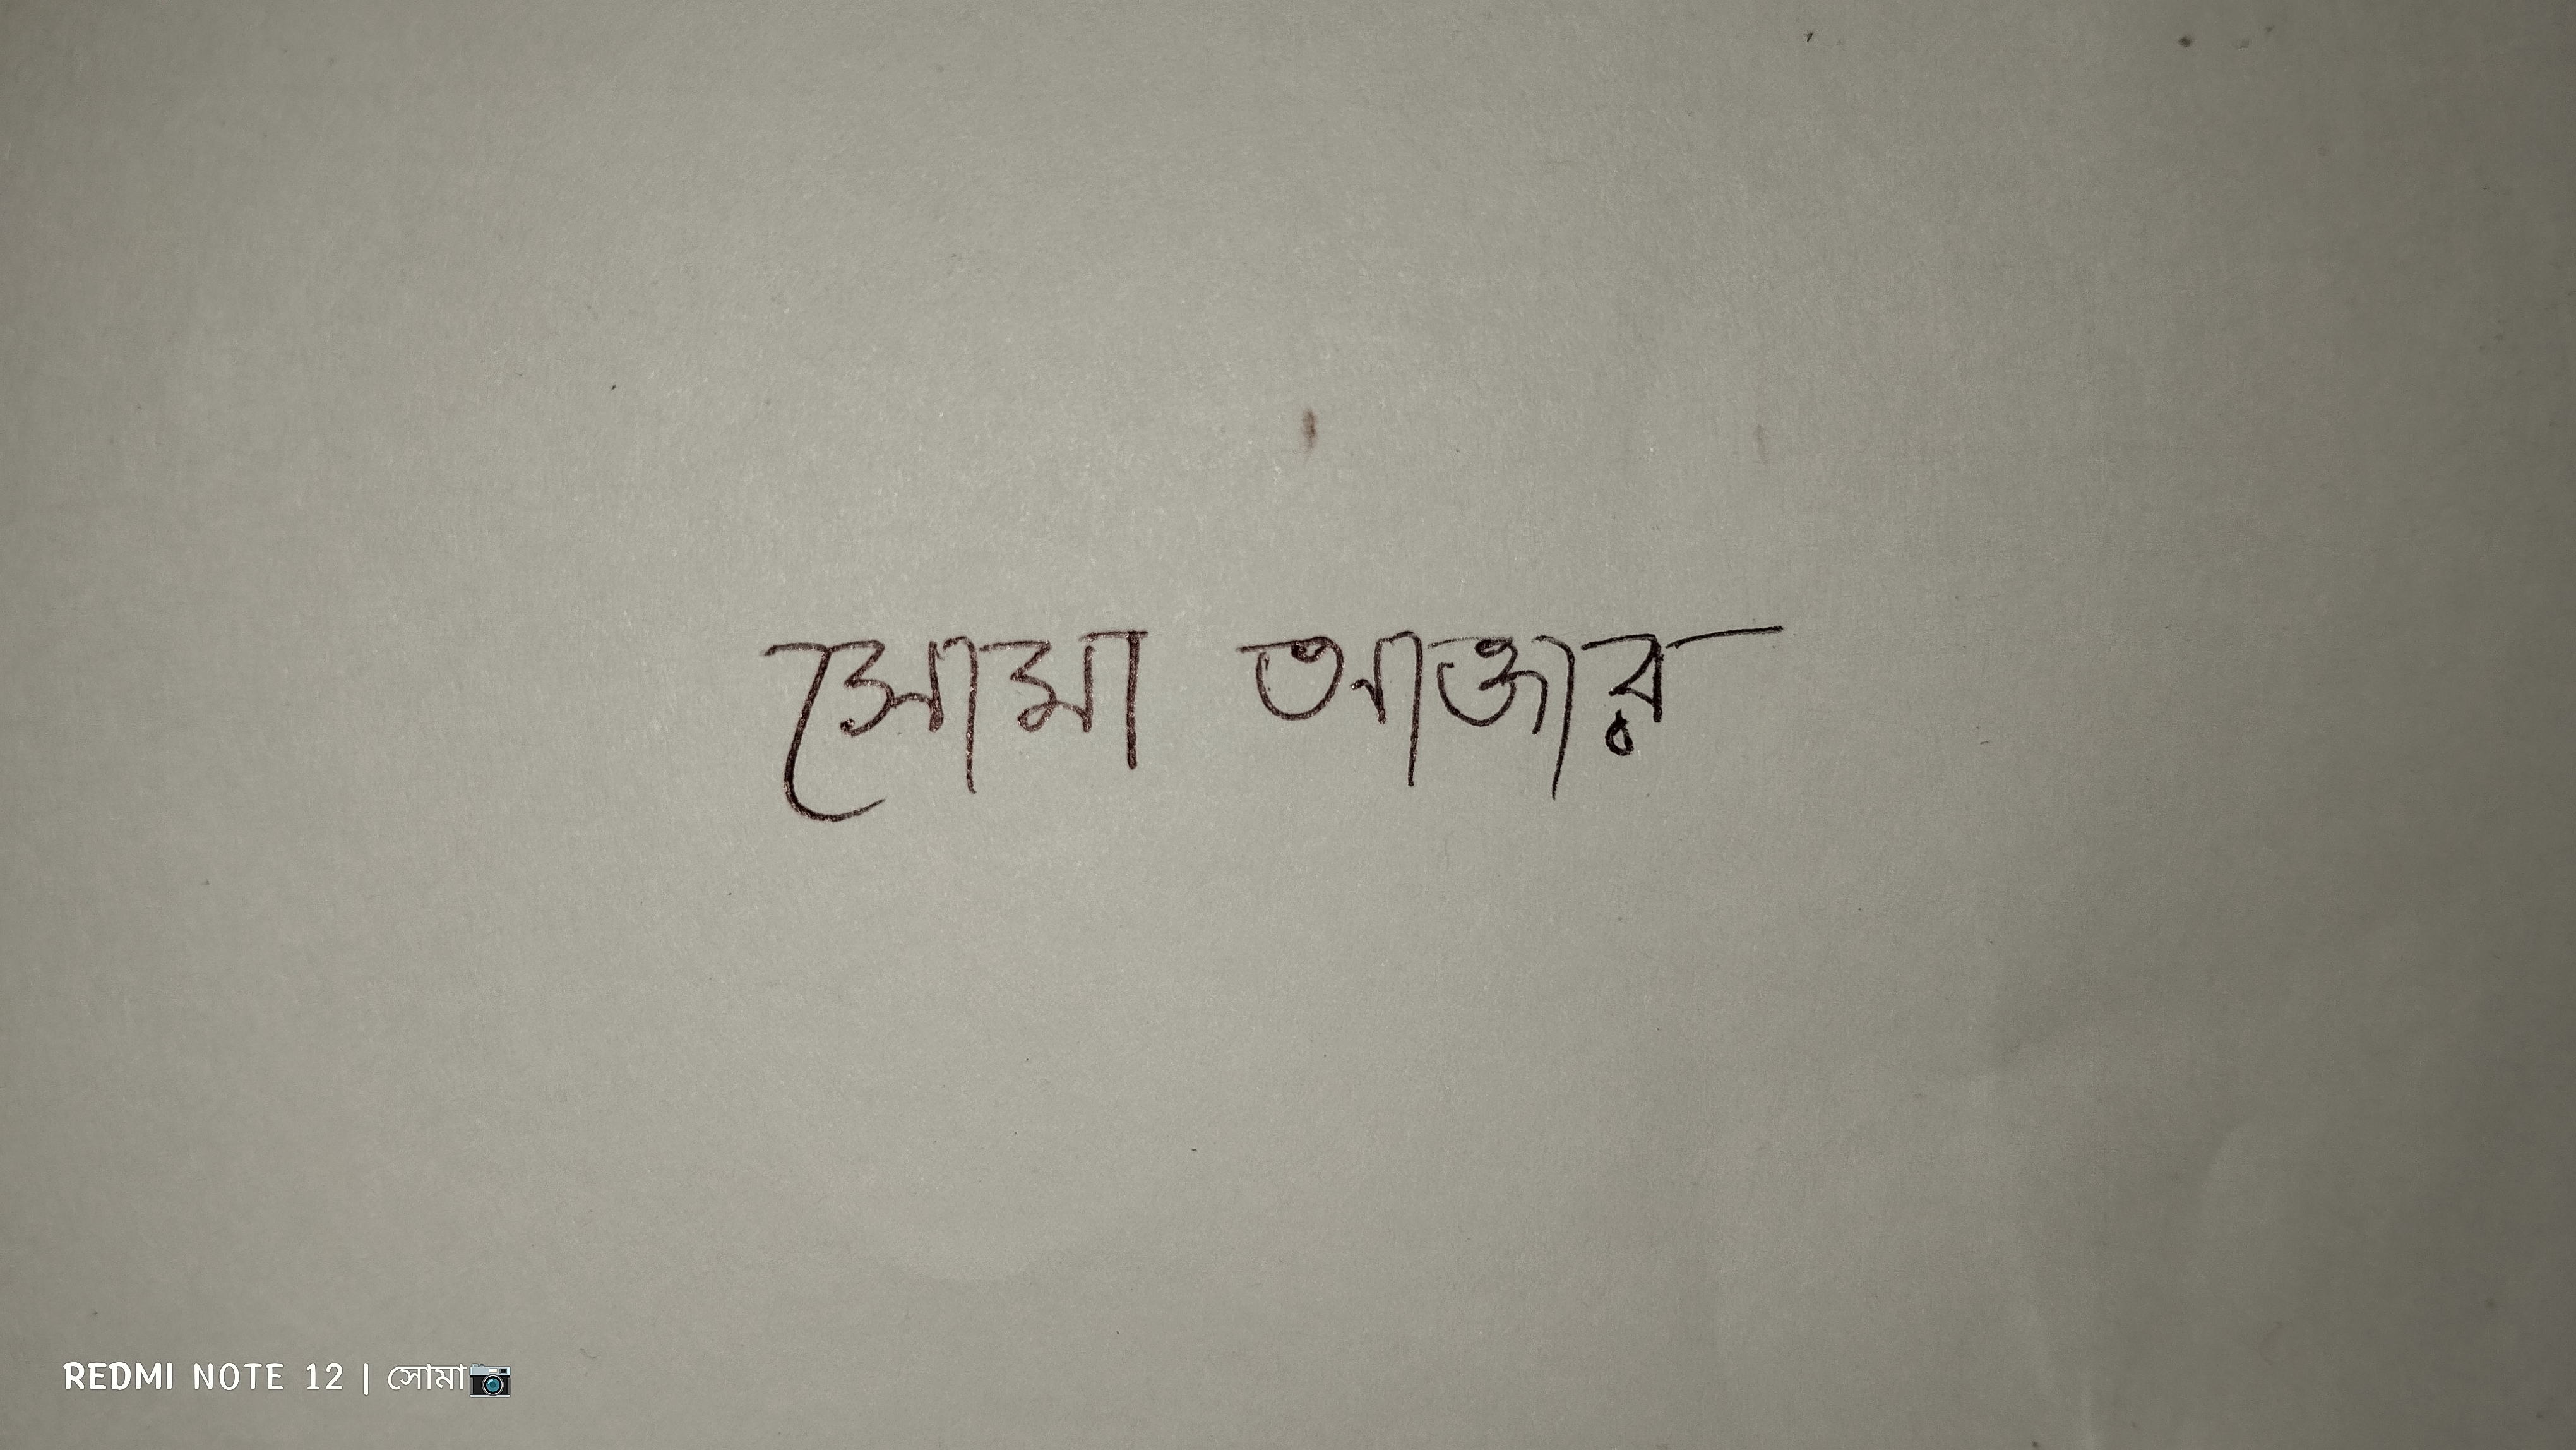 সোমা আক্তার
REDMI NOTE 12 | সোমা📷